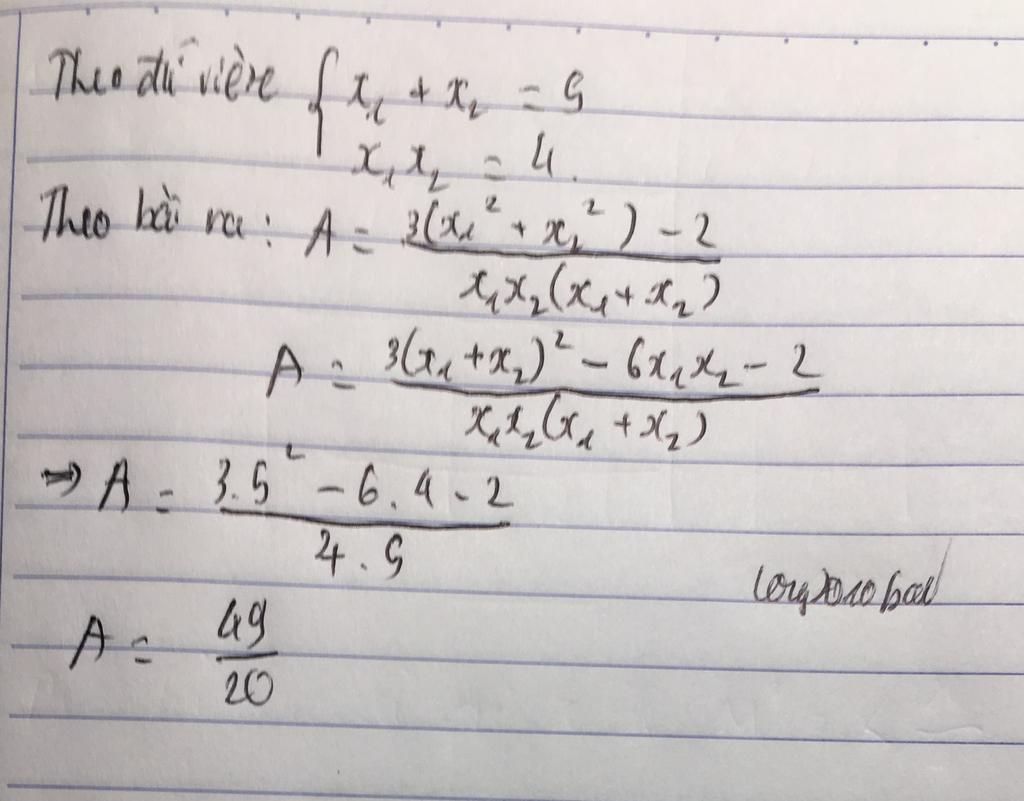 Theo đú vière { x₁ + x₂ = 5
x₁x₂ = 4.
Theo bài ra: A = 3(x₁² + x₂²) - 2 / x₁x₂(x₁ + x₂)
A = 3(x₁ + x₂)² - 6x₁x₂ - 2 / x₁x₂(x₁ + x₂)
⇒ A = 3.5² - 6.4 - 2 / 4.5
A = 49 / 20